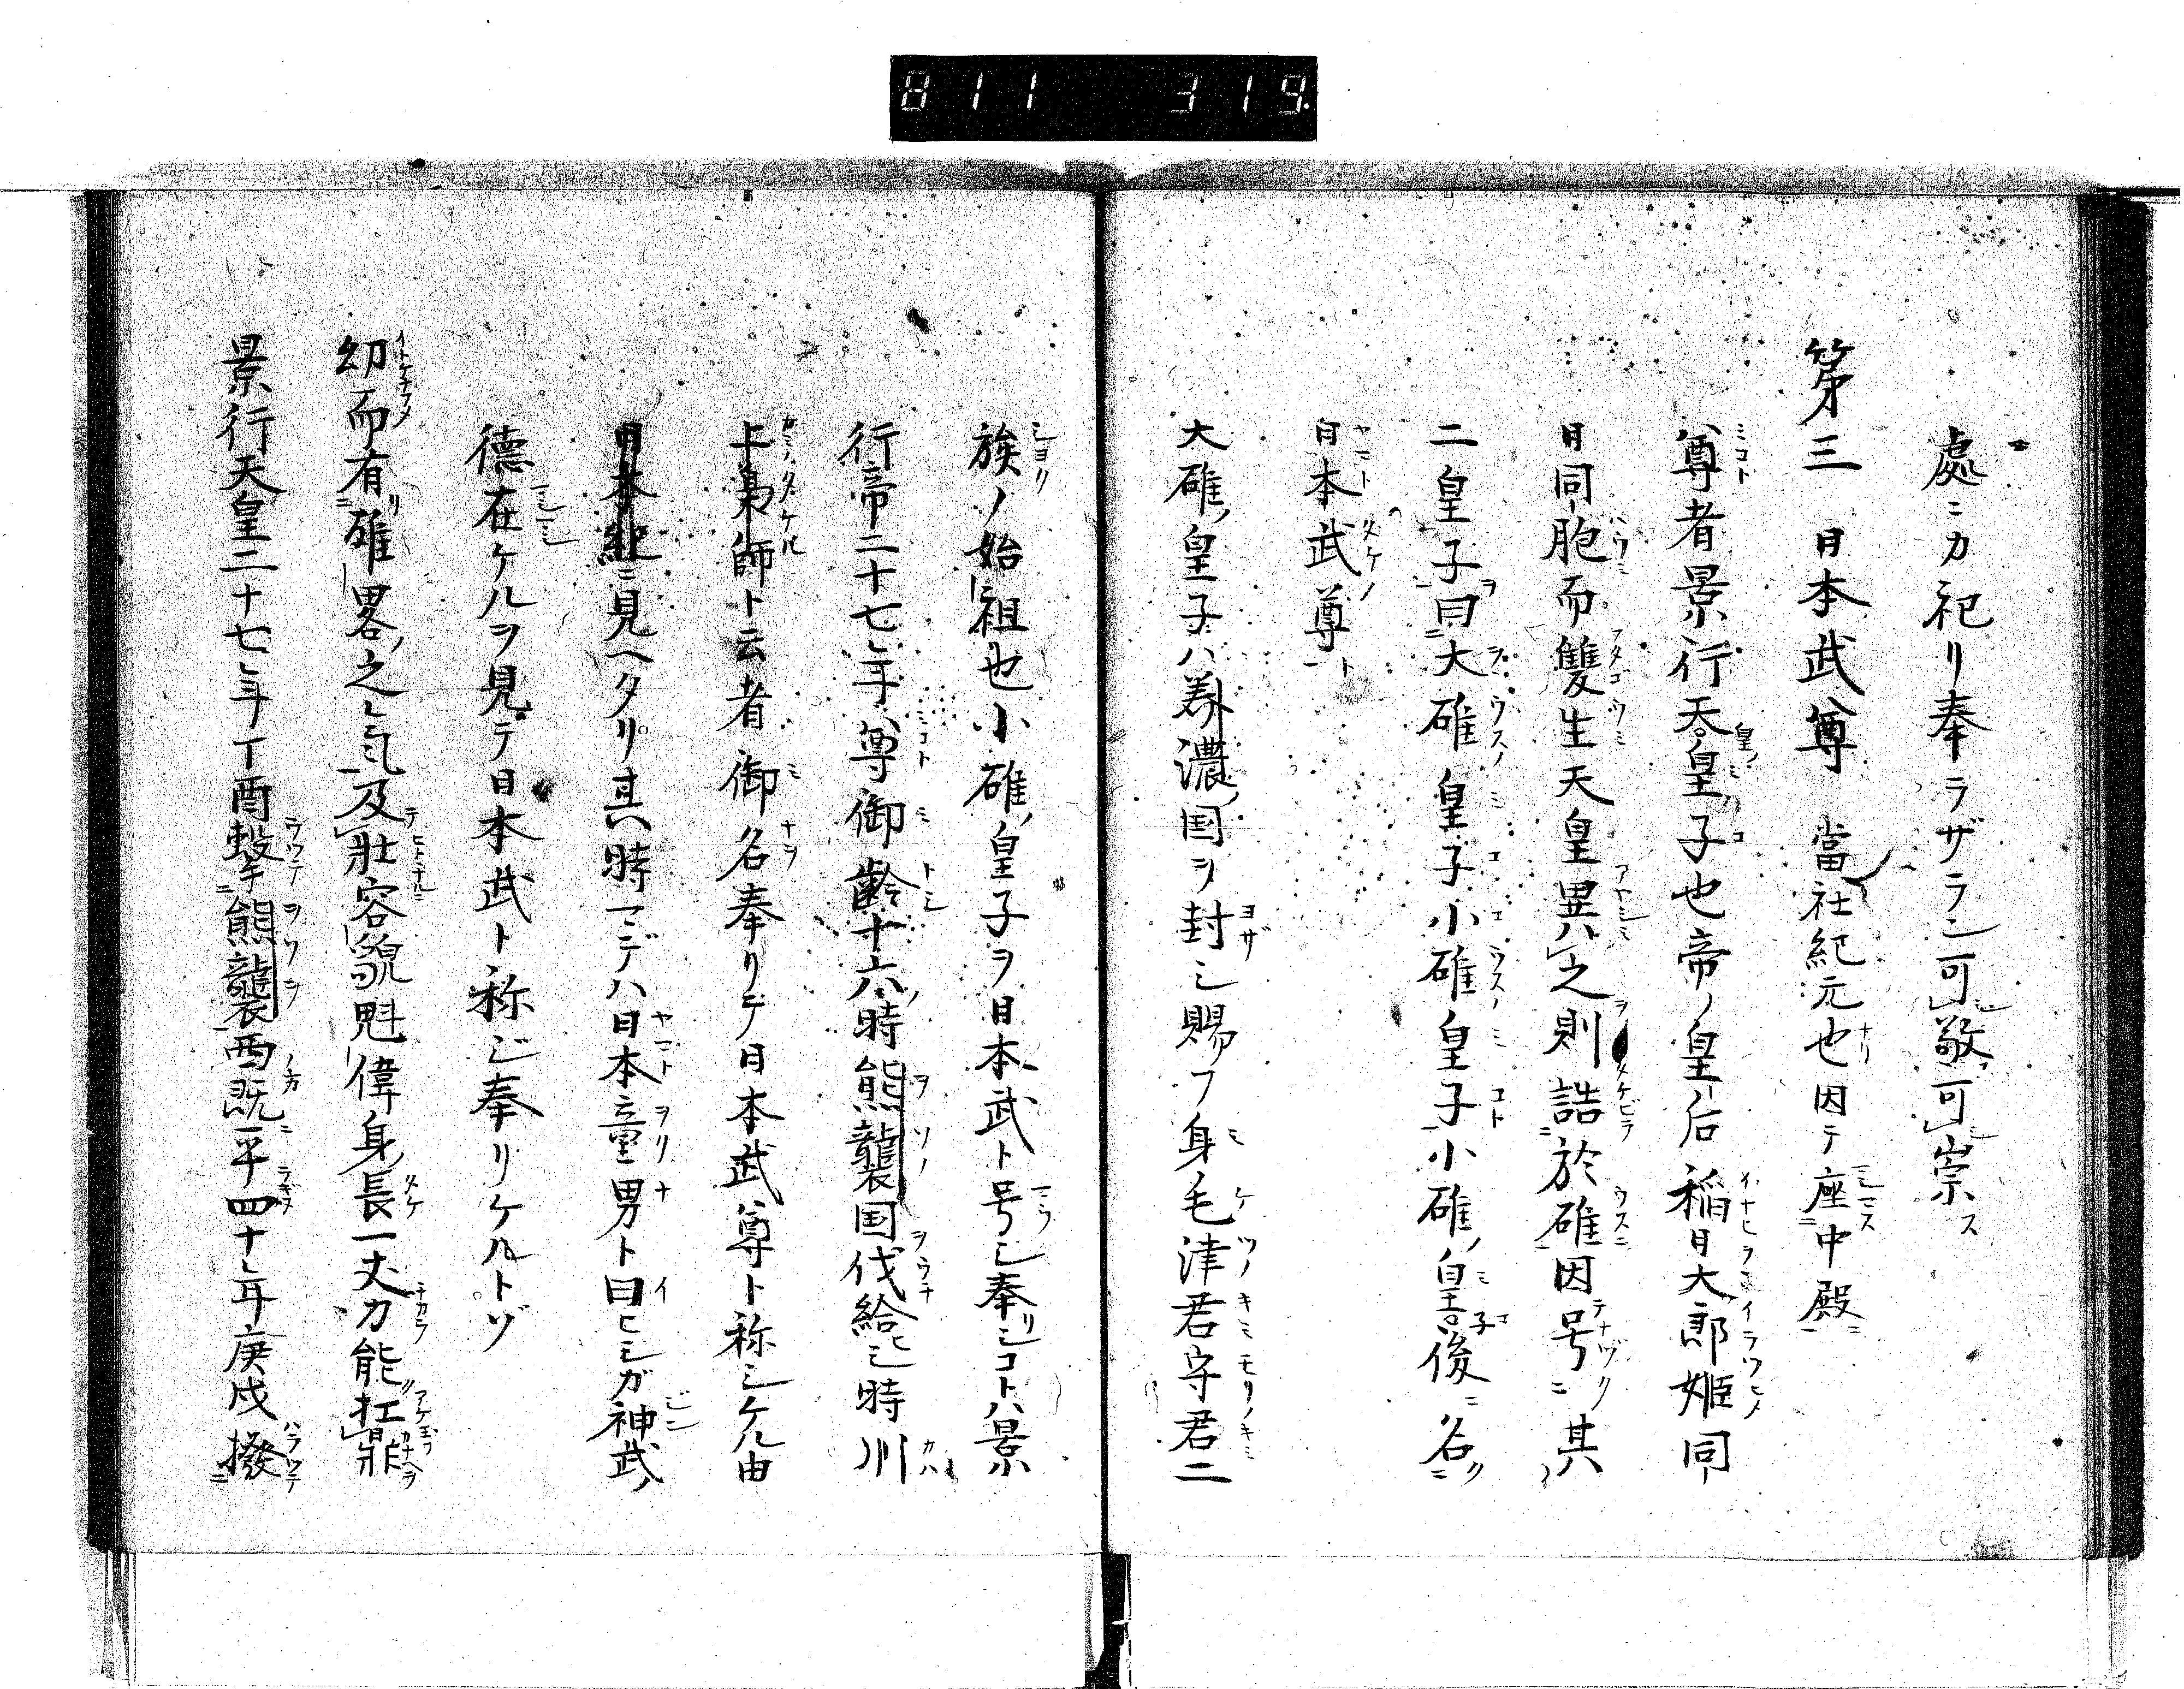 811 319.
處ニカ祀リ奉ラザラン可敬可崇ス
第三 日本武尊 當社紀元也因テ座中殿
尊者景行天皇皇子也帝ノ皇后稲日大郎姫同
日同胞而雙生天皇異之則誥於碓因号其
二皇子曰大碓皇子小碓皇子小碓皇子後ニ名
日本武尊ト
大碓皇子ハ美濃国ヲ封シ賜フ身毛津君守君二
族ノ始祖也小碓皇子ヲ日本武ト号シ奉リシコトハ景
行帝二十七年尊御齢十六時熊襲国伐給ヒシ時川
上梟師ト云者御名奉リテ日本武尊ト称シケル由
日本紀ニ見ヘタリ其時マデハ日本童男ト曰ヒシガ神武ノ
徳在ケルヲ見テ日本武ト称ジ奉リケルトゾ
幼而有雄畧之氣及壮容貌魁偉身長一丈力能扛鼎
景行天皇二十七年丁酉撃熊襲西既平四十年庚戌撥